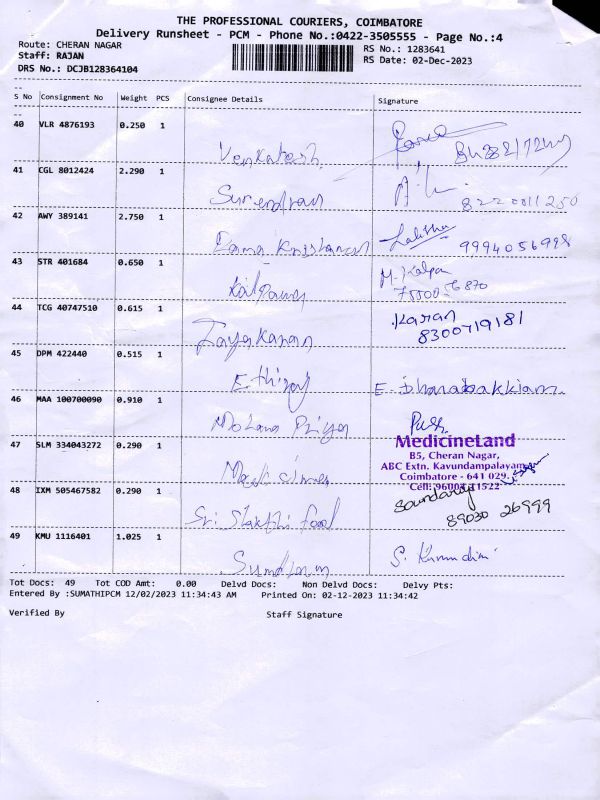 THE PROFESSIONAL COURIERS, COIMBATORE
Delivery Runsheet - PCM - Phone No.:0422-3505555 - Page No.:4
Route: CHERAN NAGAR
RS No.: 1283641
Staff: RAJAN
RS Date: 02-Dec-2023
DRS No.: DCJB128364104
S No Consignment No Weight PCS Consignee Details Signature
40 VLR 4876193 0.250 1
Venkatesh
41 CGL 8012424 2.290 1
Surendran
8220011250
42 AWY 389141 2.750 1
Lalitha
9994056998
43 STR 401684 0.650 1
Kalpana
M. Kalpa
44 TCG 40747510 0.615 1
Karan
8300719181
45 DPM 422440 0.515 1
E. Dhanabakkiam
46 MAA 100700090 0.910 1
Mohana Priya
MedicineLand
B5, Cheran Nagar,
ABC Extn. Kavundampalayam
Coimbatore - 641 029.
47 SLM 334043272 0.290 1
48 IXM 505467582 0.290 1
Sri Shakthi food
Soundarya
89030 26999
49 KMU 1116401 1.025 1
S. Kumudini
Tot Docs: 49 Tot COD Amt: 0.00 Delvd Docs: Non Delvd Docs: Delvy Pts:
Entered By :SUMATHIPCM 12/02/2023 11:34:43 AM Printed On: 02-12-2023 11:34:42
Verified By Staff Signature